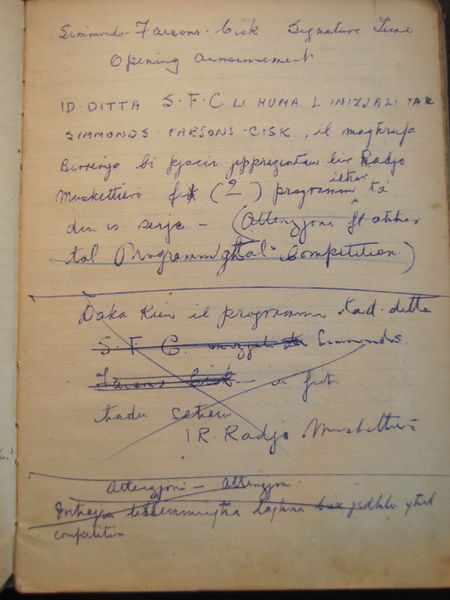 Simmonds-Farsons-Cisk Signature Tune
Opening Announcement
ID-DITTA S-F-C LI HUMA L INIZJALI TAR
SIMMONDS-FARSONS-CISK, il maghrufa
Birrerija bi pjacir jippresentaw lir Radjo
Muskettieri (2) programm iehor ta
din is serje - (Attenzjoni fl ahhar
tal Programm ghal Competition)
Daka Kien il programm tad-ditta
S. F. C. Simmonds
Farsons Cisk -
tradu
IR. Radjo Muskettieri
Attenzjoni - Attenzjoni
jidhlu ghal
competition